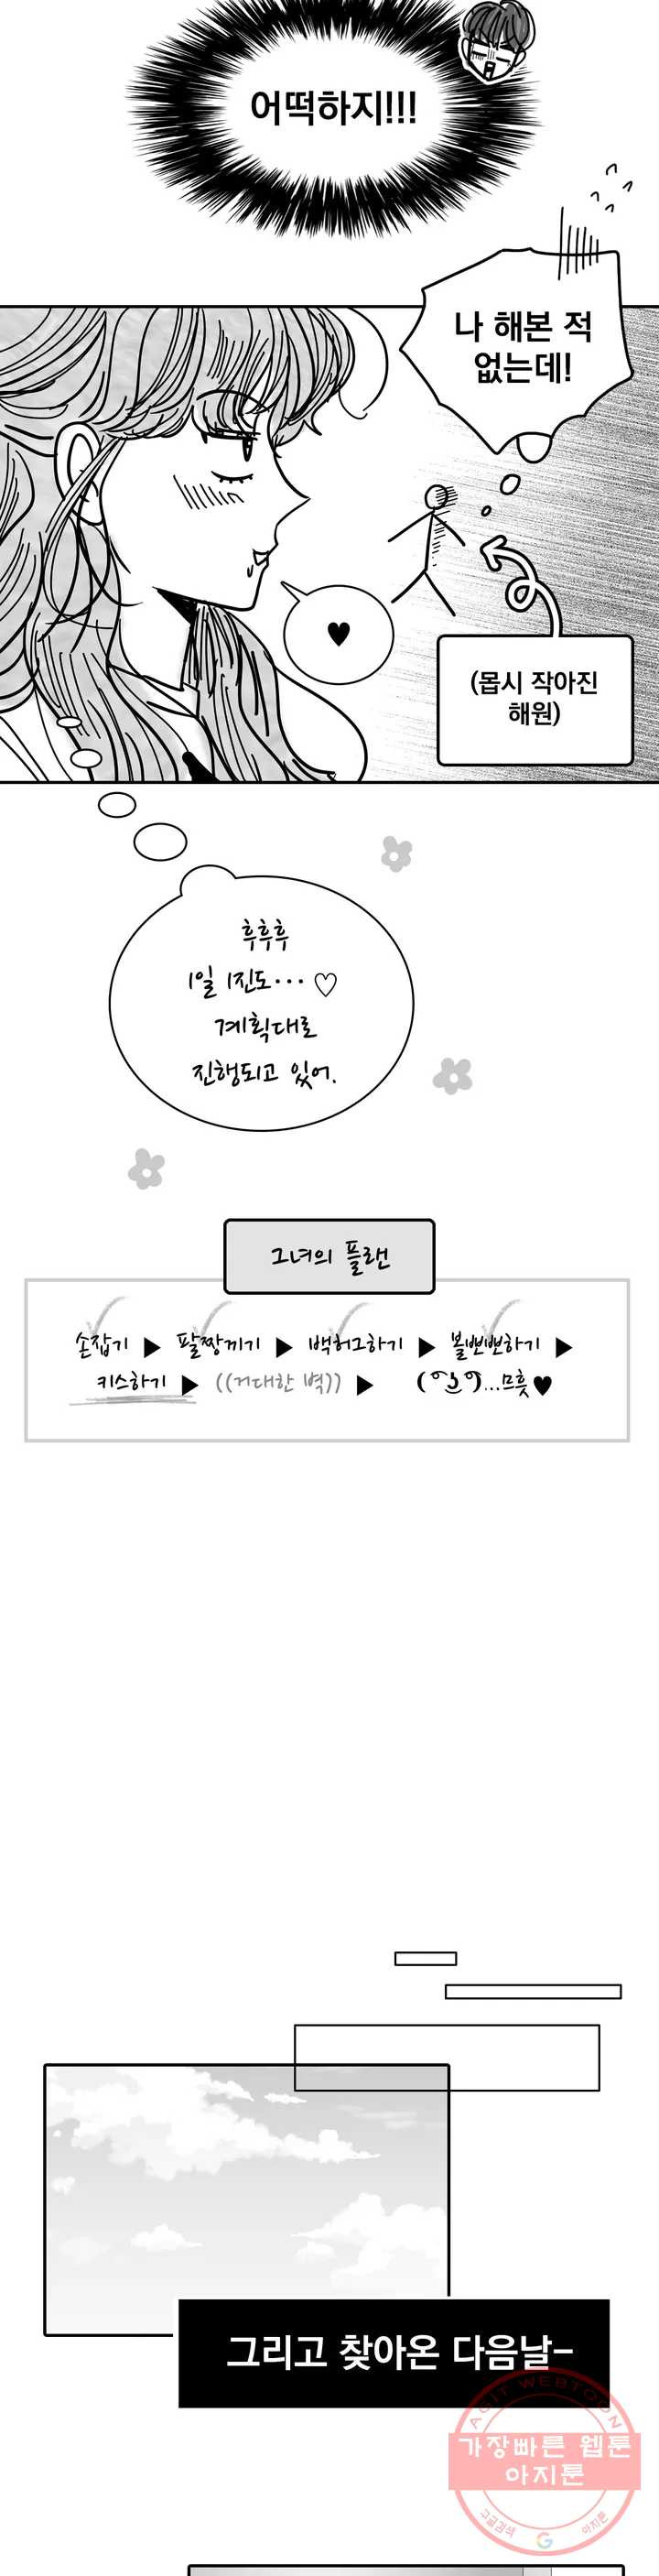 어떡하지!!!
나 해본 적
없는데!
♥
(몹시 작아진
해원)
후후후
1일 1진도... ♡
계획대로
진행되고 있어.
그녀의 플랜
손잡기 ▶ 팔짱끼기 ▶ 백허그하기 ▶ 볼뽀뽀하기 ▶
키스하기 ▶ ((거대한 벽)) ▶ ( ͡° ͜ʖ ͡°)...므흣♥
그리고 찾아온 다음날-
AGIT WEBTOON
가장빠른 웹툰
아지툰
구글검색 G 아지툰